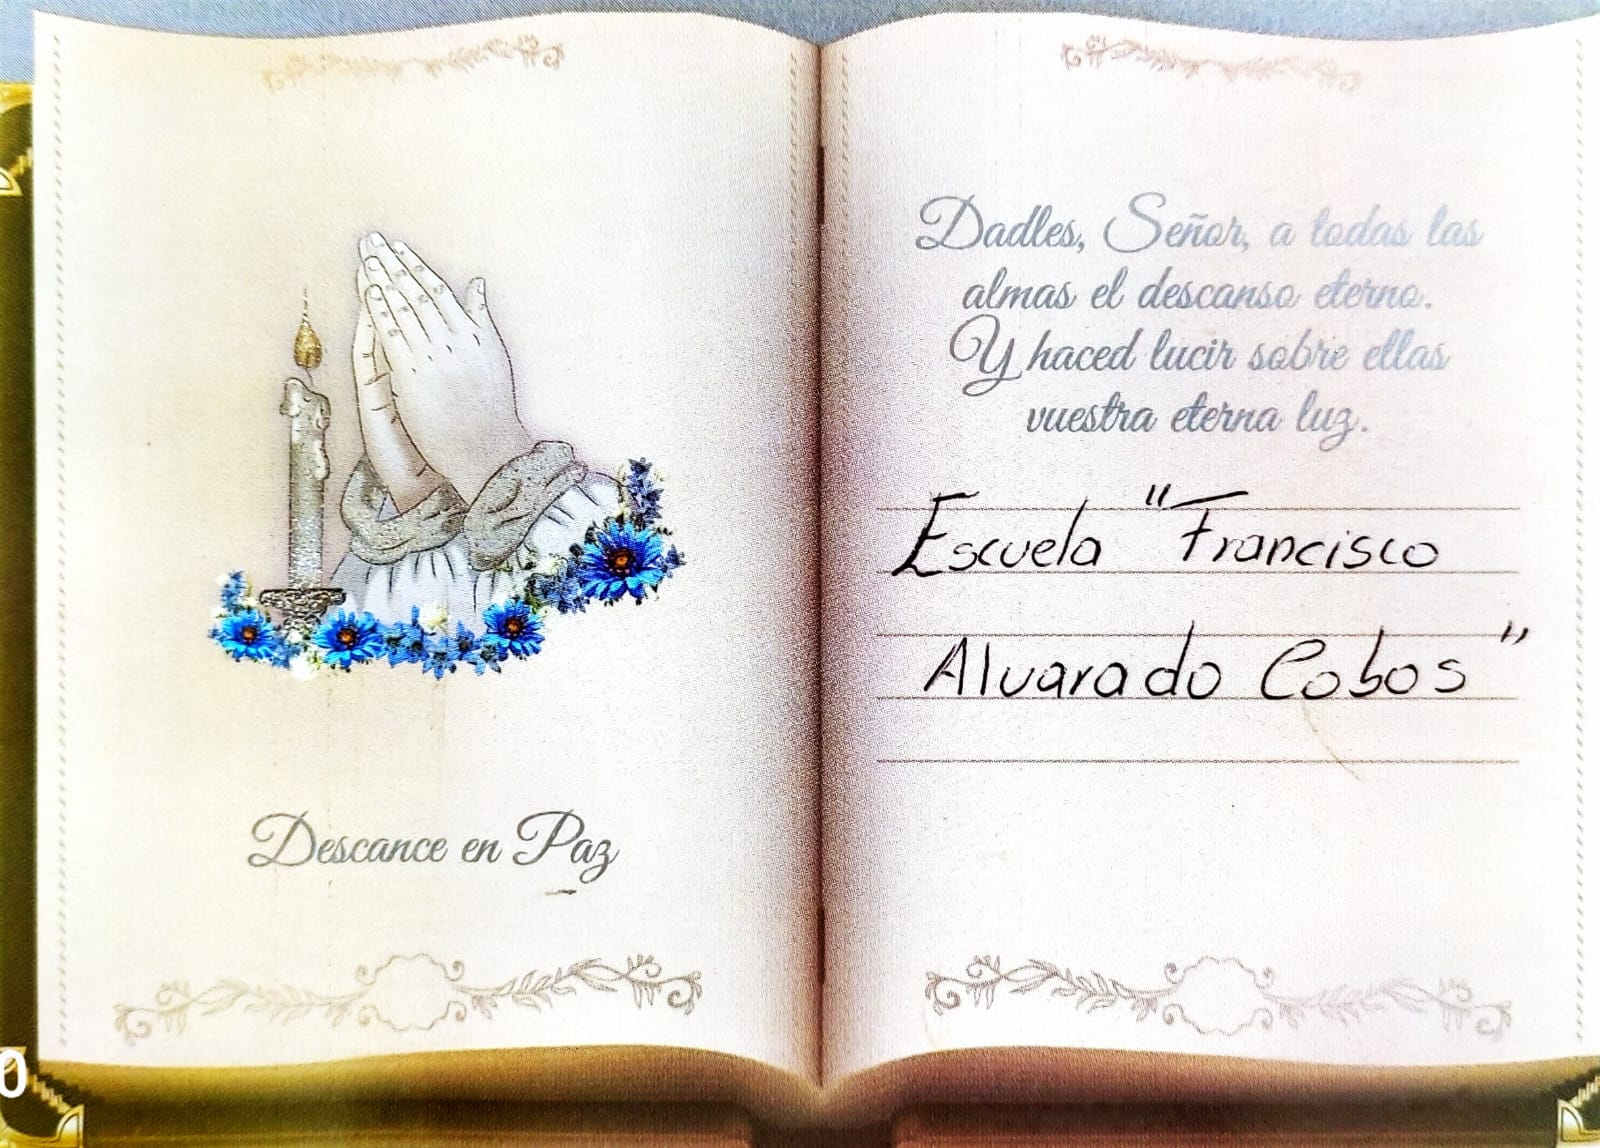 Descance en Paz
Dadles, Señor, a todas las
almas el descanso eterno.
Y haced lucir sobre ellas
vuestra eterna luz.
Escuela "Francisco
Alvarado Cobos"
0